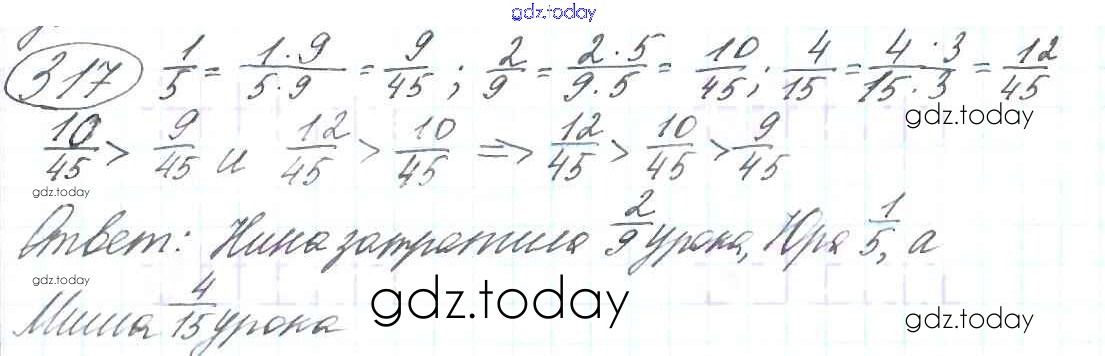 gdz.today
317 1/5 = 1·9/5·9 = 9/45; 2/9 = 2·5/9·5 = 10/45; 4/15 = 4·3/15·3 = 12/45
gdz.today
10/45 > 9/45 и 12/45 > 10/45 => 12/45 > 10/45 > 9/45
gdz.today
Ответ: Нина затратила 2/9 урока, Юра 1/5, а
gdz.today
Миша 4/15 урока
gdz.today
gdz.today